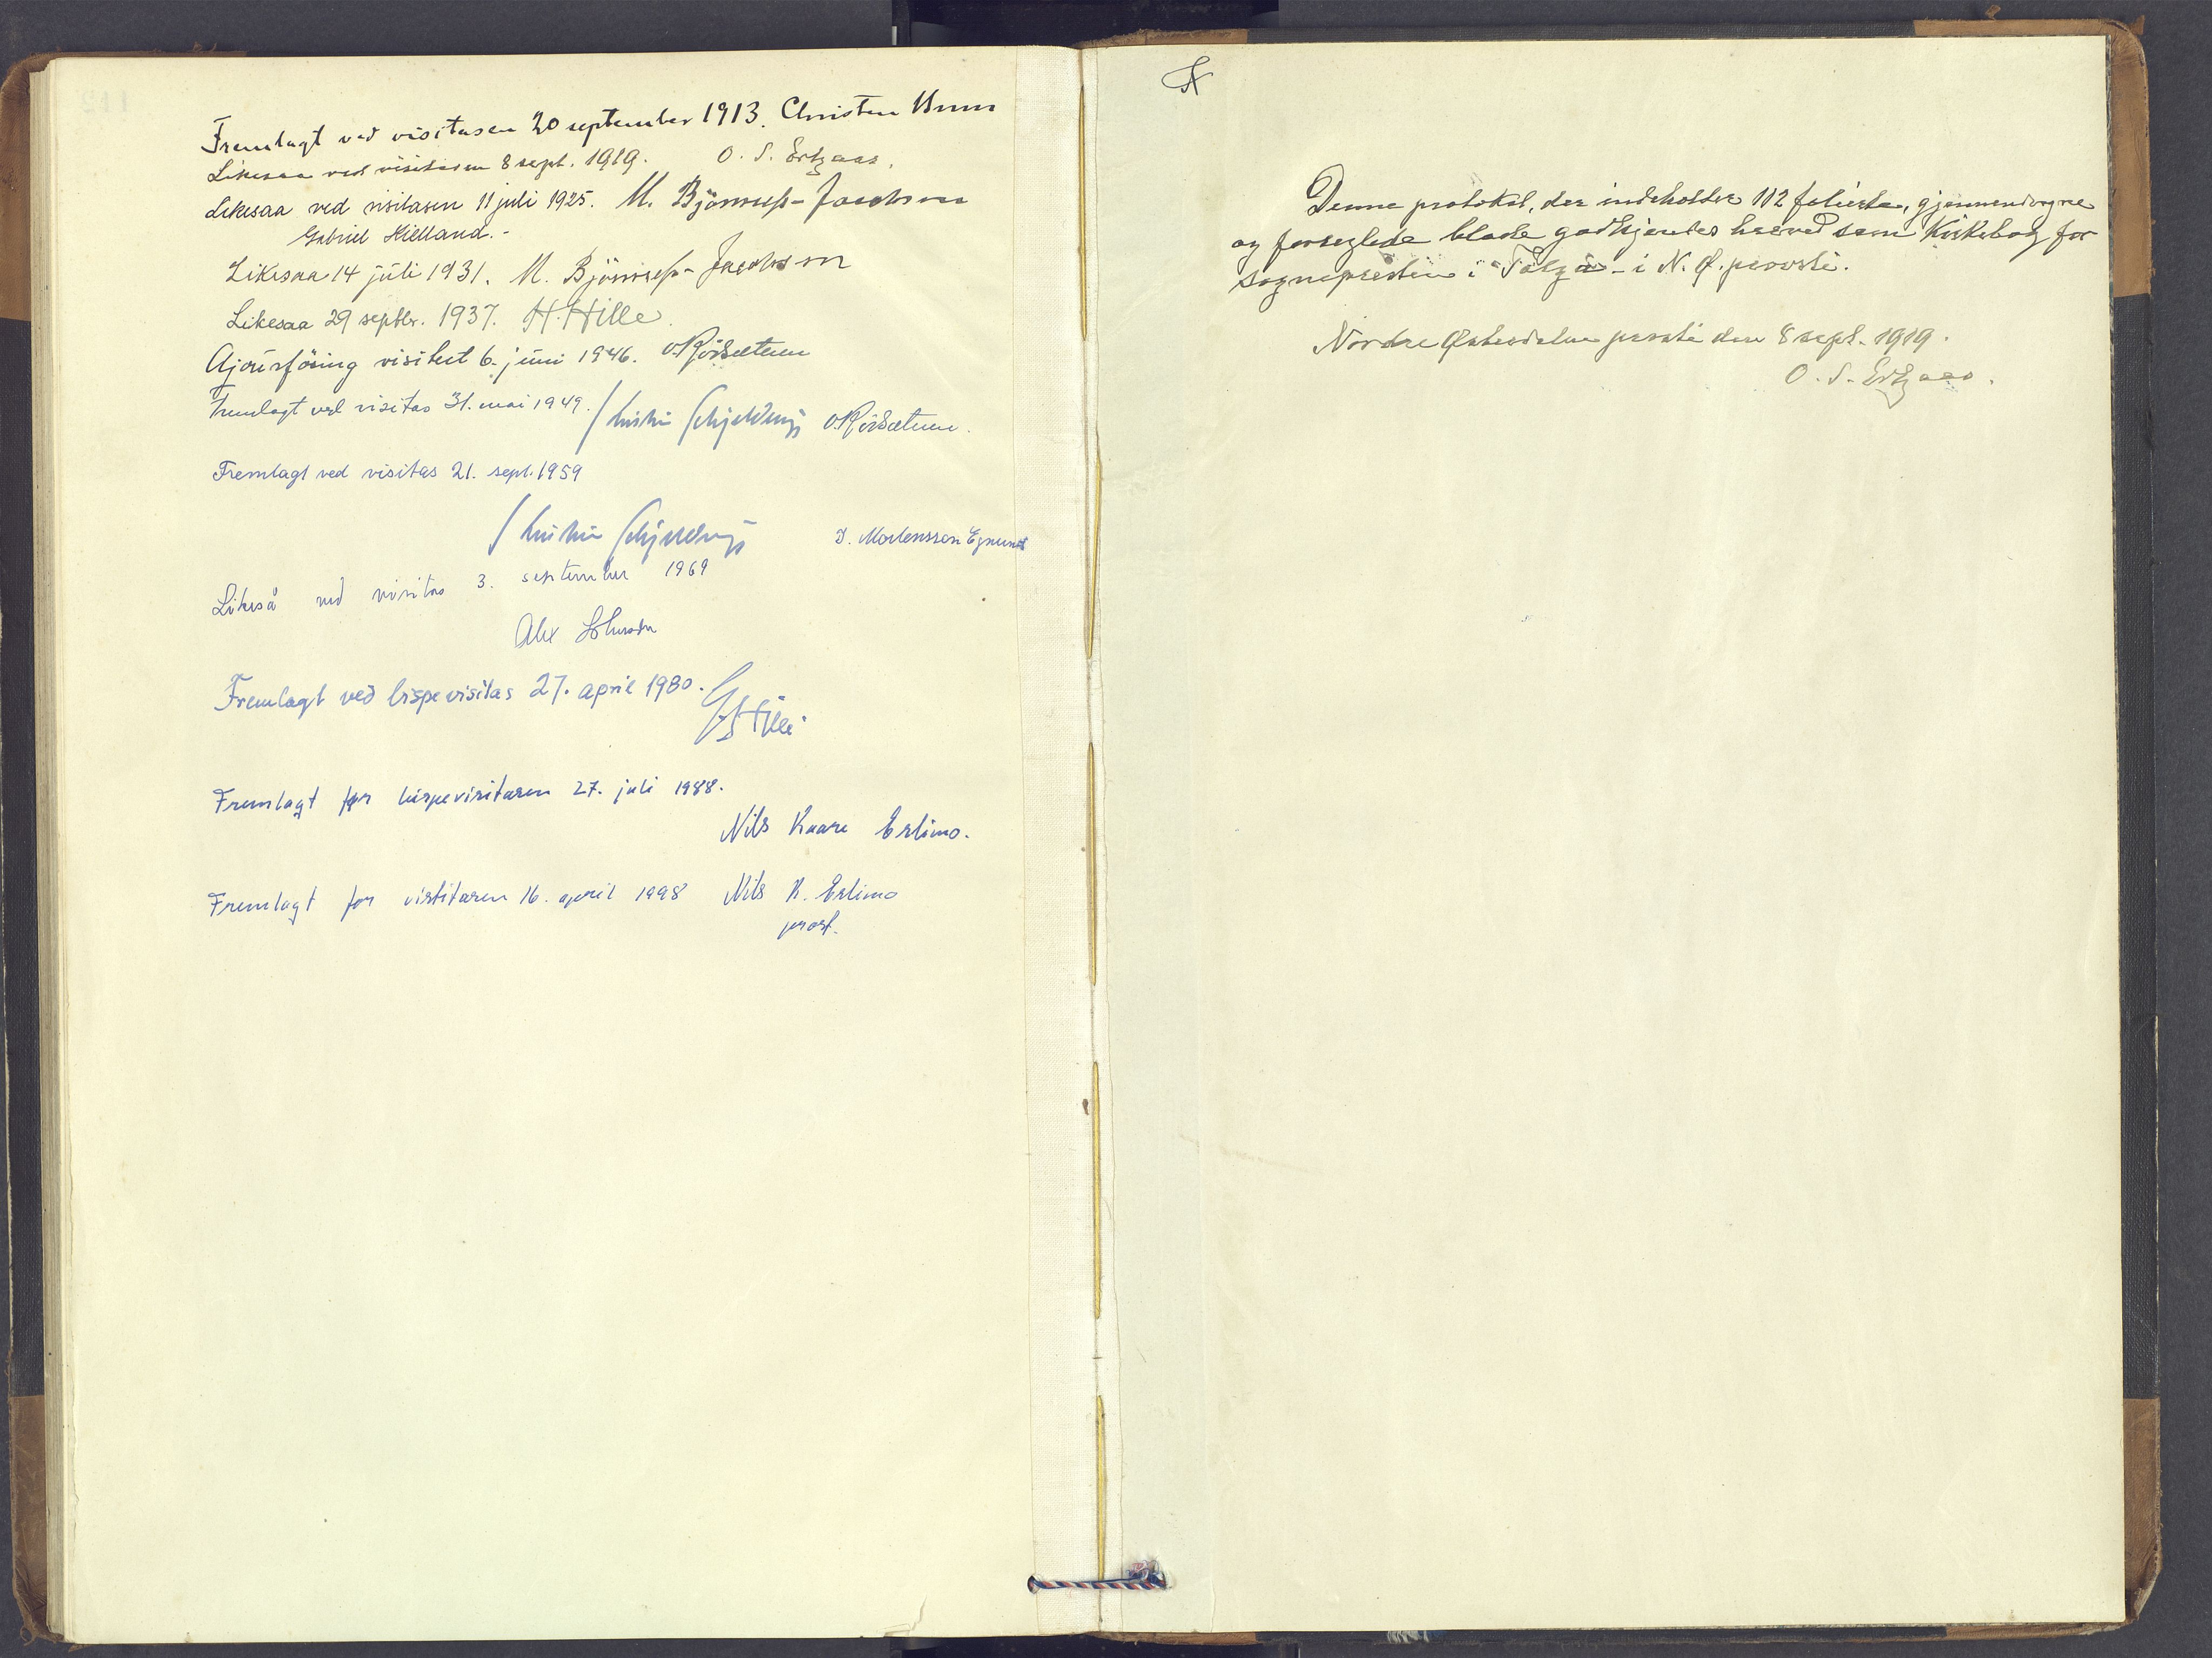 Fremlagt ved visitasen 20 september 1913. Christen Brun
Likesaa ved visitasen 8 sept. 1919. O. S. Ertzaas.
Likesaa ved visitasen 11 juli 1925. M. Bjønness-Jacobsen
Gabriel Kielland.-
Likesaa 14 juli 1931. M. Bjønness-Jacobsen
Likesaa 29 septbr. 1937. H. Hille.
Ajourføring visitert 6. juni 1946.
Fremlagt ved visitas 31. mai 1949. Kristian Schjelderup
Fremlagt ved visitas 21. sept. 1959
Kristian Schjelderup D. Mortensson Egnund
Likeså ved visitas 3. september 1969
Alex Johnson
Fremlagt ved bispevisitas 27. april 1980. G. Hille
Fremlagt for bispevisitasen 27. juli 1988.
Nils Kaare Erlimo.
Fremlagt for vistitasen 16. april 1998 Nils K. Erlimo
prost.
Denne protokol, der indeholder 112 folierte, gjennemdragne
og forseglede blade godkjendes herved som Kirkebog for
sognepresten i Tolga - i N. Ø. provsti.
Nordre Østerdalens prosti den 8 sept. 1919.
O. S. Ertzaas.